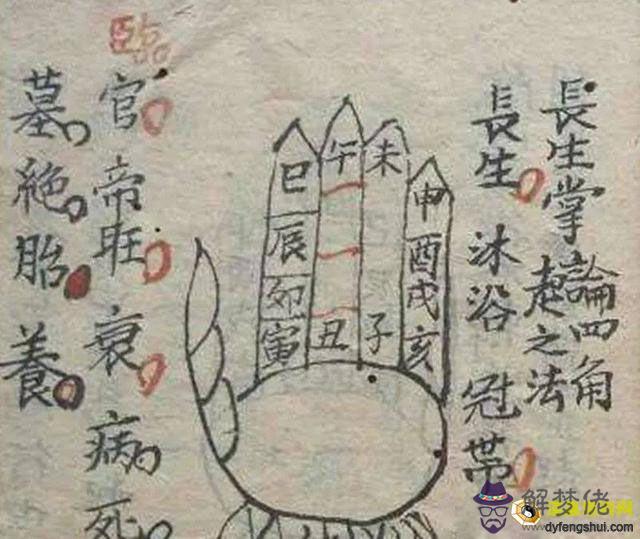 長生掌論四角
起之法
長生沐浴冠帯
巳午未申
辰酉
卯戌
寅丑子亥
臨官帝旺衰病死
墓絶胎養
解梦佬
dyfengshui.com